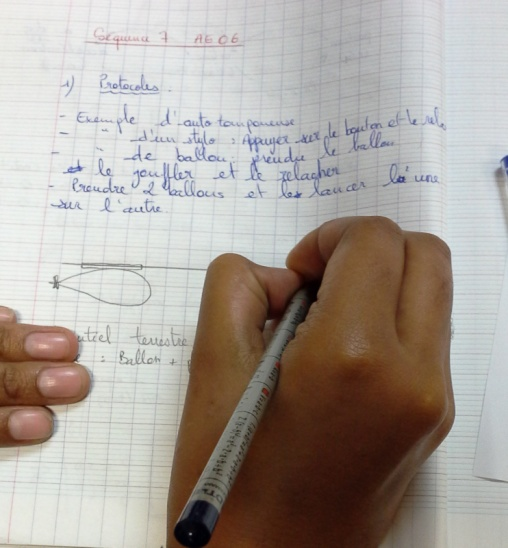 Séquence 7 AE06
1) Protocoles.
- Exemple d'auto tamponeuse
- " d'un stylo : Appuyer sur le bouton et le
- " de ballon : prendre le ballon
et le gonfler et le relacher
- Prendre 2 ballons et les lancer l'une
sur l'autre.
terrestre
: Ballon +